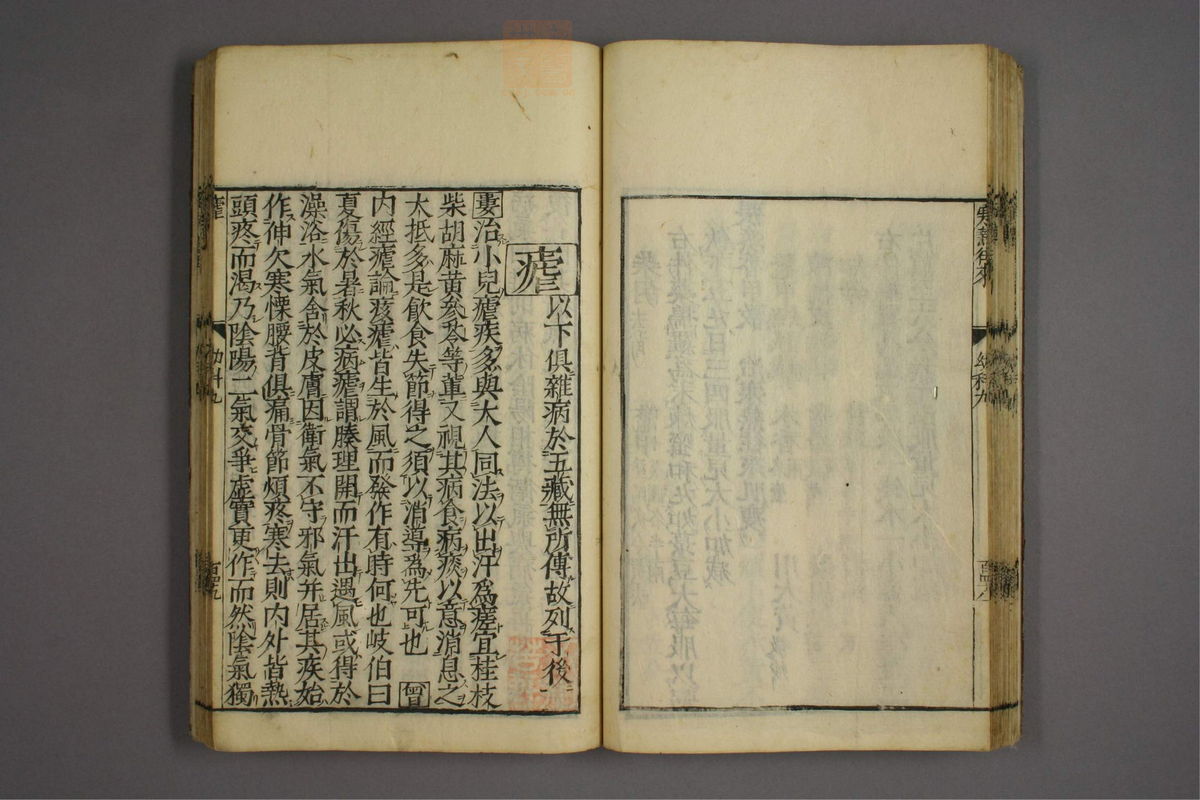 寒熱往來
幼科九
瘧 以下俱雜病於五藏無所傳故列于後
婁 治小兒瘧疾多與大人同法以出汗爲瘥宜桂枝
柴胡麻黄參苓等輩又視其病食病痰以意消息之
大抵多是飲食失節得之須以消導爲先可也 曾
內經瘧論痎瘧皆生於風而發作有時何也岐伯曰
夏傷於暑秋必病瘧謂腠理開而汗出遇風或得於
澡浴水氣舍於皮膚因衛氣不守邪氣并居其疾始
作伸欠寒慄腰背俱痛骨節煩疼寒去則内外皆熱
頭疼而渴乃陰陽二氣交爭虛實更作而然陰氣獨
瘧
幼科九